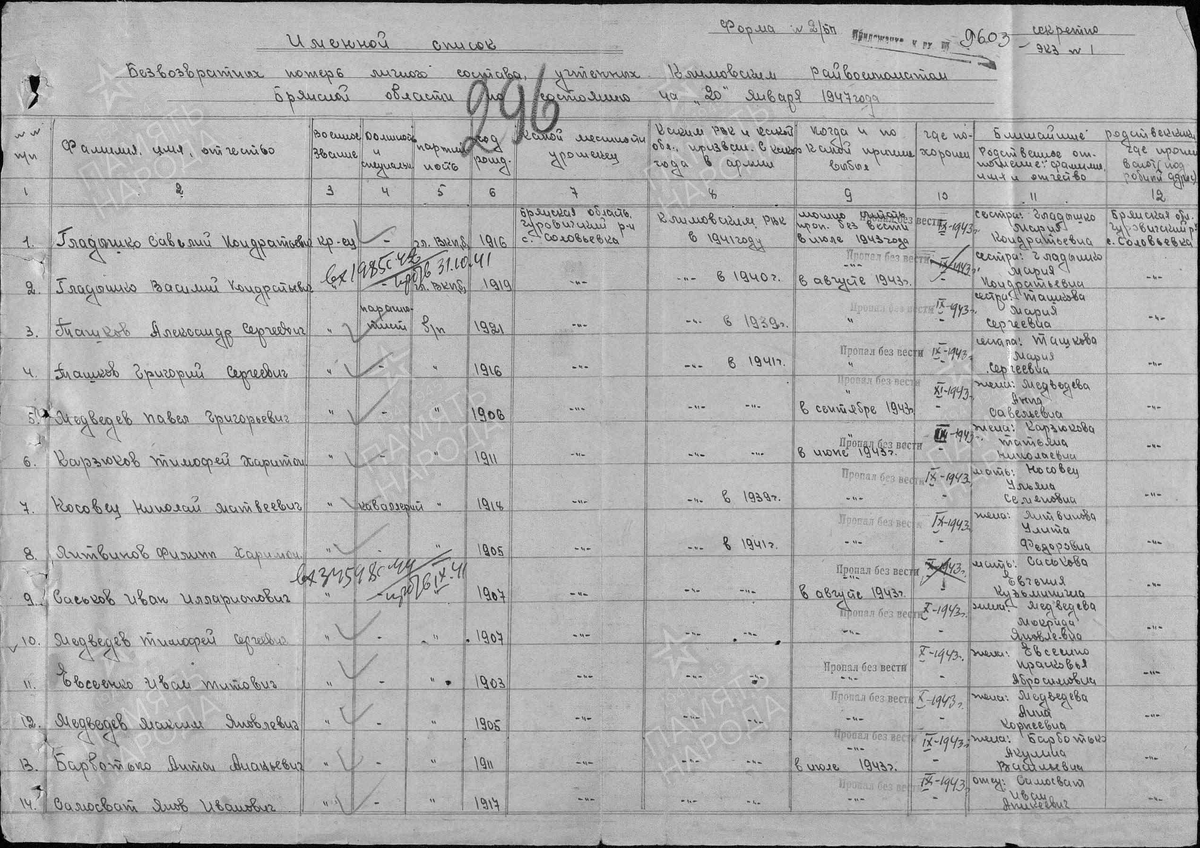 Форма № 2/БП
9603
секретно
экз № 1
Именной список
Безвозвратных потерь личного состава, учтенных Климовским Райвоенкоматом
Брянской области по состоянию на "20" января 1947 года
296
№№ п/п
Фамилия, имя, отчество
Военное звание
Должность и специальн.
партийность
год рожд.
Какой местности уроженец
Каким РВК и какой обл. призван. С какого года в армии
Когда и по какой причине выбыл
где похоронен
Ближайшие родственники
Родственное отношение: фамилия, имя и отчество
1 2 3 4 5 6 7 8 9 10 11 12
1. Гладышко Савелий Кондратьевич кр-ец - чл. ВКПб 1916 Брянская область, Чуровичский р-н с. Соловьевка Климовским РВК в 1941 году можно считать проп. без вести в июле 1943 года Пропал без вести IX-1943г. сестра: Гладышко Мария Кондратьевна Брянская обл Чуровичский р-н с. Соловьевка
вх 19850-48
31.10.41
2. Гладышко Василий Кондратьевич чл. ВКПб 1919 -"- -"- в 1940г. Пропал без вести -"- в августе 1943г. IX-1943г. сестра: Гладышко Мария Кондратьевна -"-
3. Ташков Александр Сергеевич " б/п 1921 -"- -"- в 1939г. Пропал без вести " IX-1943г. сестра: Ташкова Мария Сергеевна -"-
4. Ташков Григорий Сергеевич " - " 1916 -"- -"- в 1941г. Пропал без вести " IX-1943г. Ташкова Мария Сергеевна -"-
5. Медведев Павел Григорьевич " - " 1906 -"- -"- -"- Пропал без вести " в сентябре 1943г. XI-1943г. - жена: Медведева Анна Савельевна -"-
6. Карзюков Тимофей Харитон " - " 1911 -"- -"- -"- Пропал без вести " в июне 1943г. IX-1943г. - жена: Карзюкова Татьяна Николаевна -"-
7. Косовец Николай Матвеевич " кавалерий " 1918 -"- -"- в 1939г. Пропал без вести -"- IX-1943г. - мать: Носовец Ульяна Семеновна -"-
8. Литвинов Филипп Харитон " - " 1905 -"- -"- в 1941г. Пропал без вести -"- IX-1943г. - жена: Литвинова Улита Федоровна -"-
9. Саськов Иван Илларионович " 1907 -"- -"- -"- Пропал без вести -"- в августе 1943г. X-1943г. мать: Саськова Евгения Кузьминична -"-
10. Медведев Тимофей Сергеевич " - " 1907 -"- -"- -"- Пропал без вести -"- X-1943г. - жена: Медведева Мокрида Яковлевна -"-
11. Евсеенко Иван Титович " - " 1903 -"- -"- -"- Пропал без вести -"- X-1943г. - жена: Евсеенко Прасковья Абросимовна -"-
12. Медведев Максим Яковлевич " - " 1905 -"- -"- -"- Пропал без вести -"- X-1943г. - жена: Медведева Анна Корнеевна -"-
13. Барботько Антон " - " 1911 -"- -"- -"- Пропал без вести -"- в июле 1943г. IX-1943г. - жена: Барботько Акулина Васильевна -"-
14. Самосват Яков Иванович " - " 1917 -"- -"- -"- Пропал без вести -"- IX-1943г. - отец: Самосват Иван Аникеевич -"-
ПАМЯТЬ НАРОДА